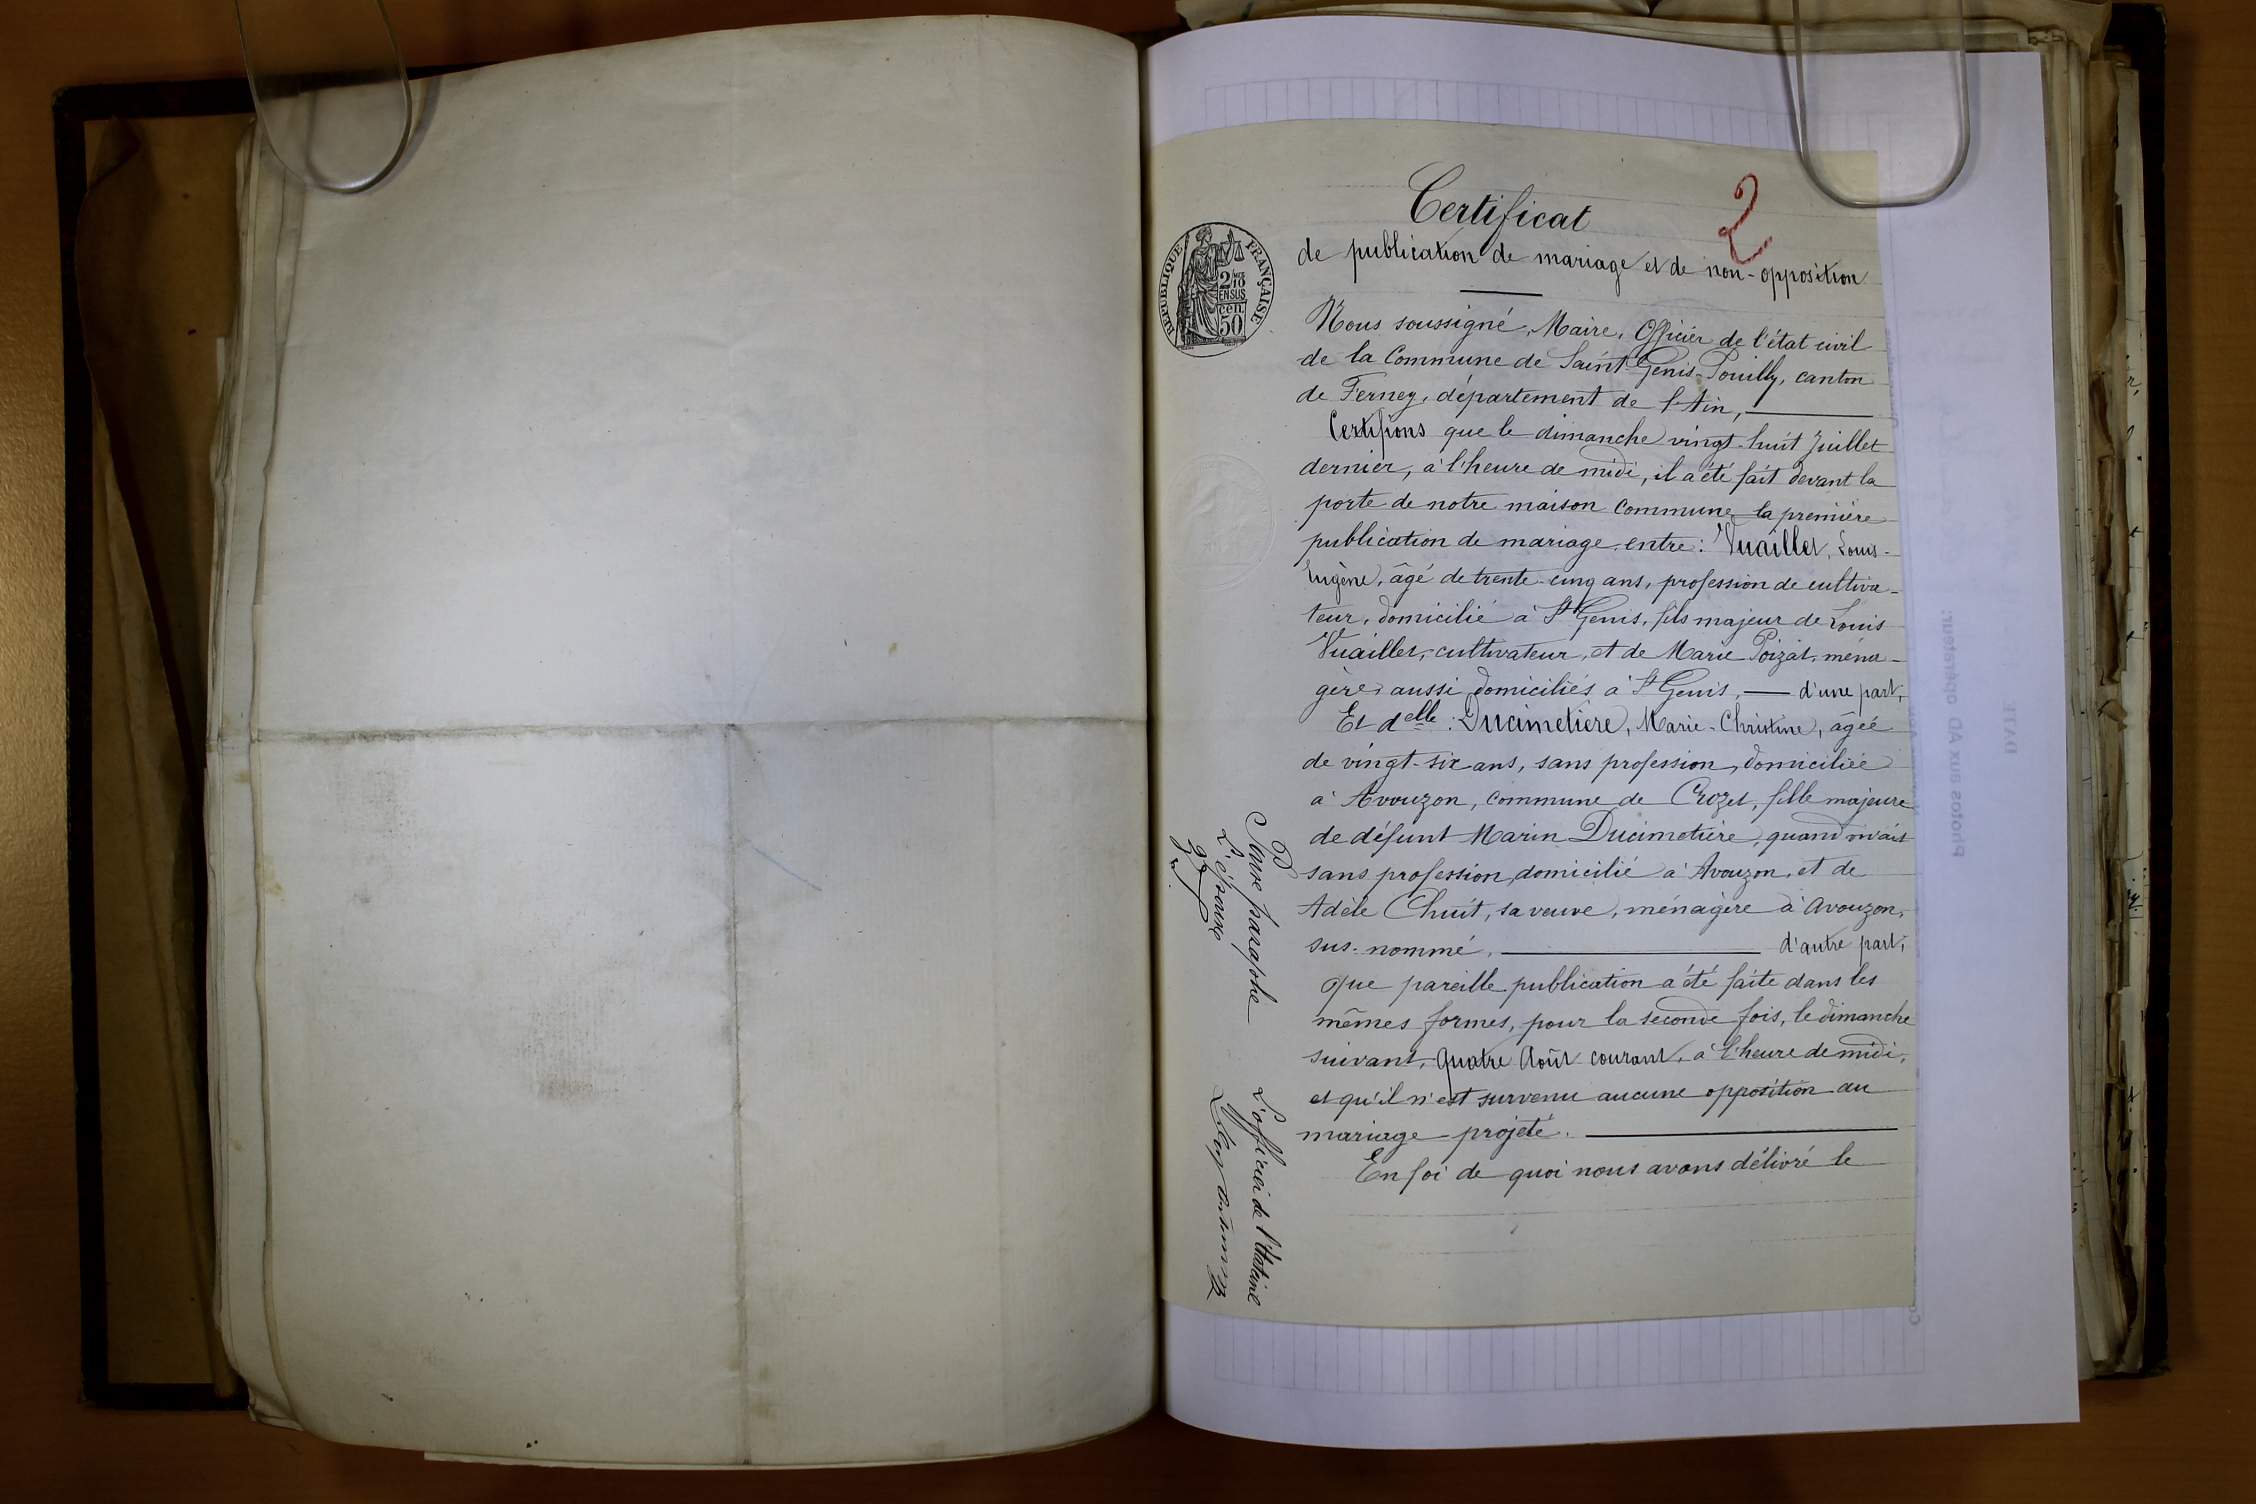 Certificat
2
de publication de mariage et de non-opposition
RÉPUBLIQUE FRANÇAISE
2/10
EN SUS
cen.
50
Nous soussigné, Maire, Officier de l'état civil
de la Commune de Saint-Genis-Pouilly, canton
de Ferney, département de l'Ain,
Certifions que le dimanche vingt-huit Juillet
dernier, à l'heure de midi, il a été fait devant la
porte de notre maison commune la première
publication de mariage entre : Vuaillet, Louis-
Eugène, âgé de trente-cinq ans, profession de cultiva-
teur, domicilié à St Genis, fils majeur de Louis
Vuaillet, cultivateur, et de Marie Poizat, ména-
gère, aussi domiciliés à St Genis, — d'une part,
Et delle : Ducimetière, Marie-Christine, âgée
de vingt-six ans, sans profession, domiciliée
à Avouzon, commune de Crozet, fille majeure
de défunt Marin Ducimetière, quand vivait
sans profession, domicilié à Avouzon, et de
Adèle Chuit, sa veuve, ménagère à Avouzon,
sus-nommé, — d'autre part ;
que pareille publication a été faite dans les
mêmes formes, pour la seconde fois, le dimanche
suivant, quatre Août courant, à l'heure de midi,
et qu'il n'est survenu aucune opposition au
mariage projeté.
En foi de quoi nous avons délivré le
paraphe
L'épouse
L'officier de l'état civil
Photos aux AD opérateur:
DATE